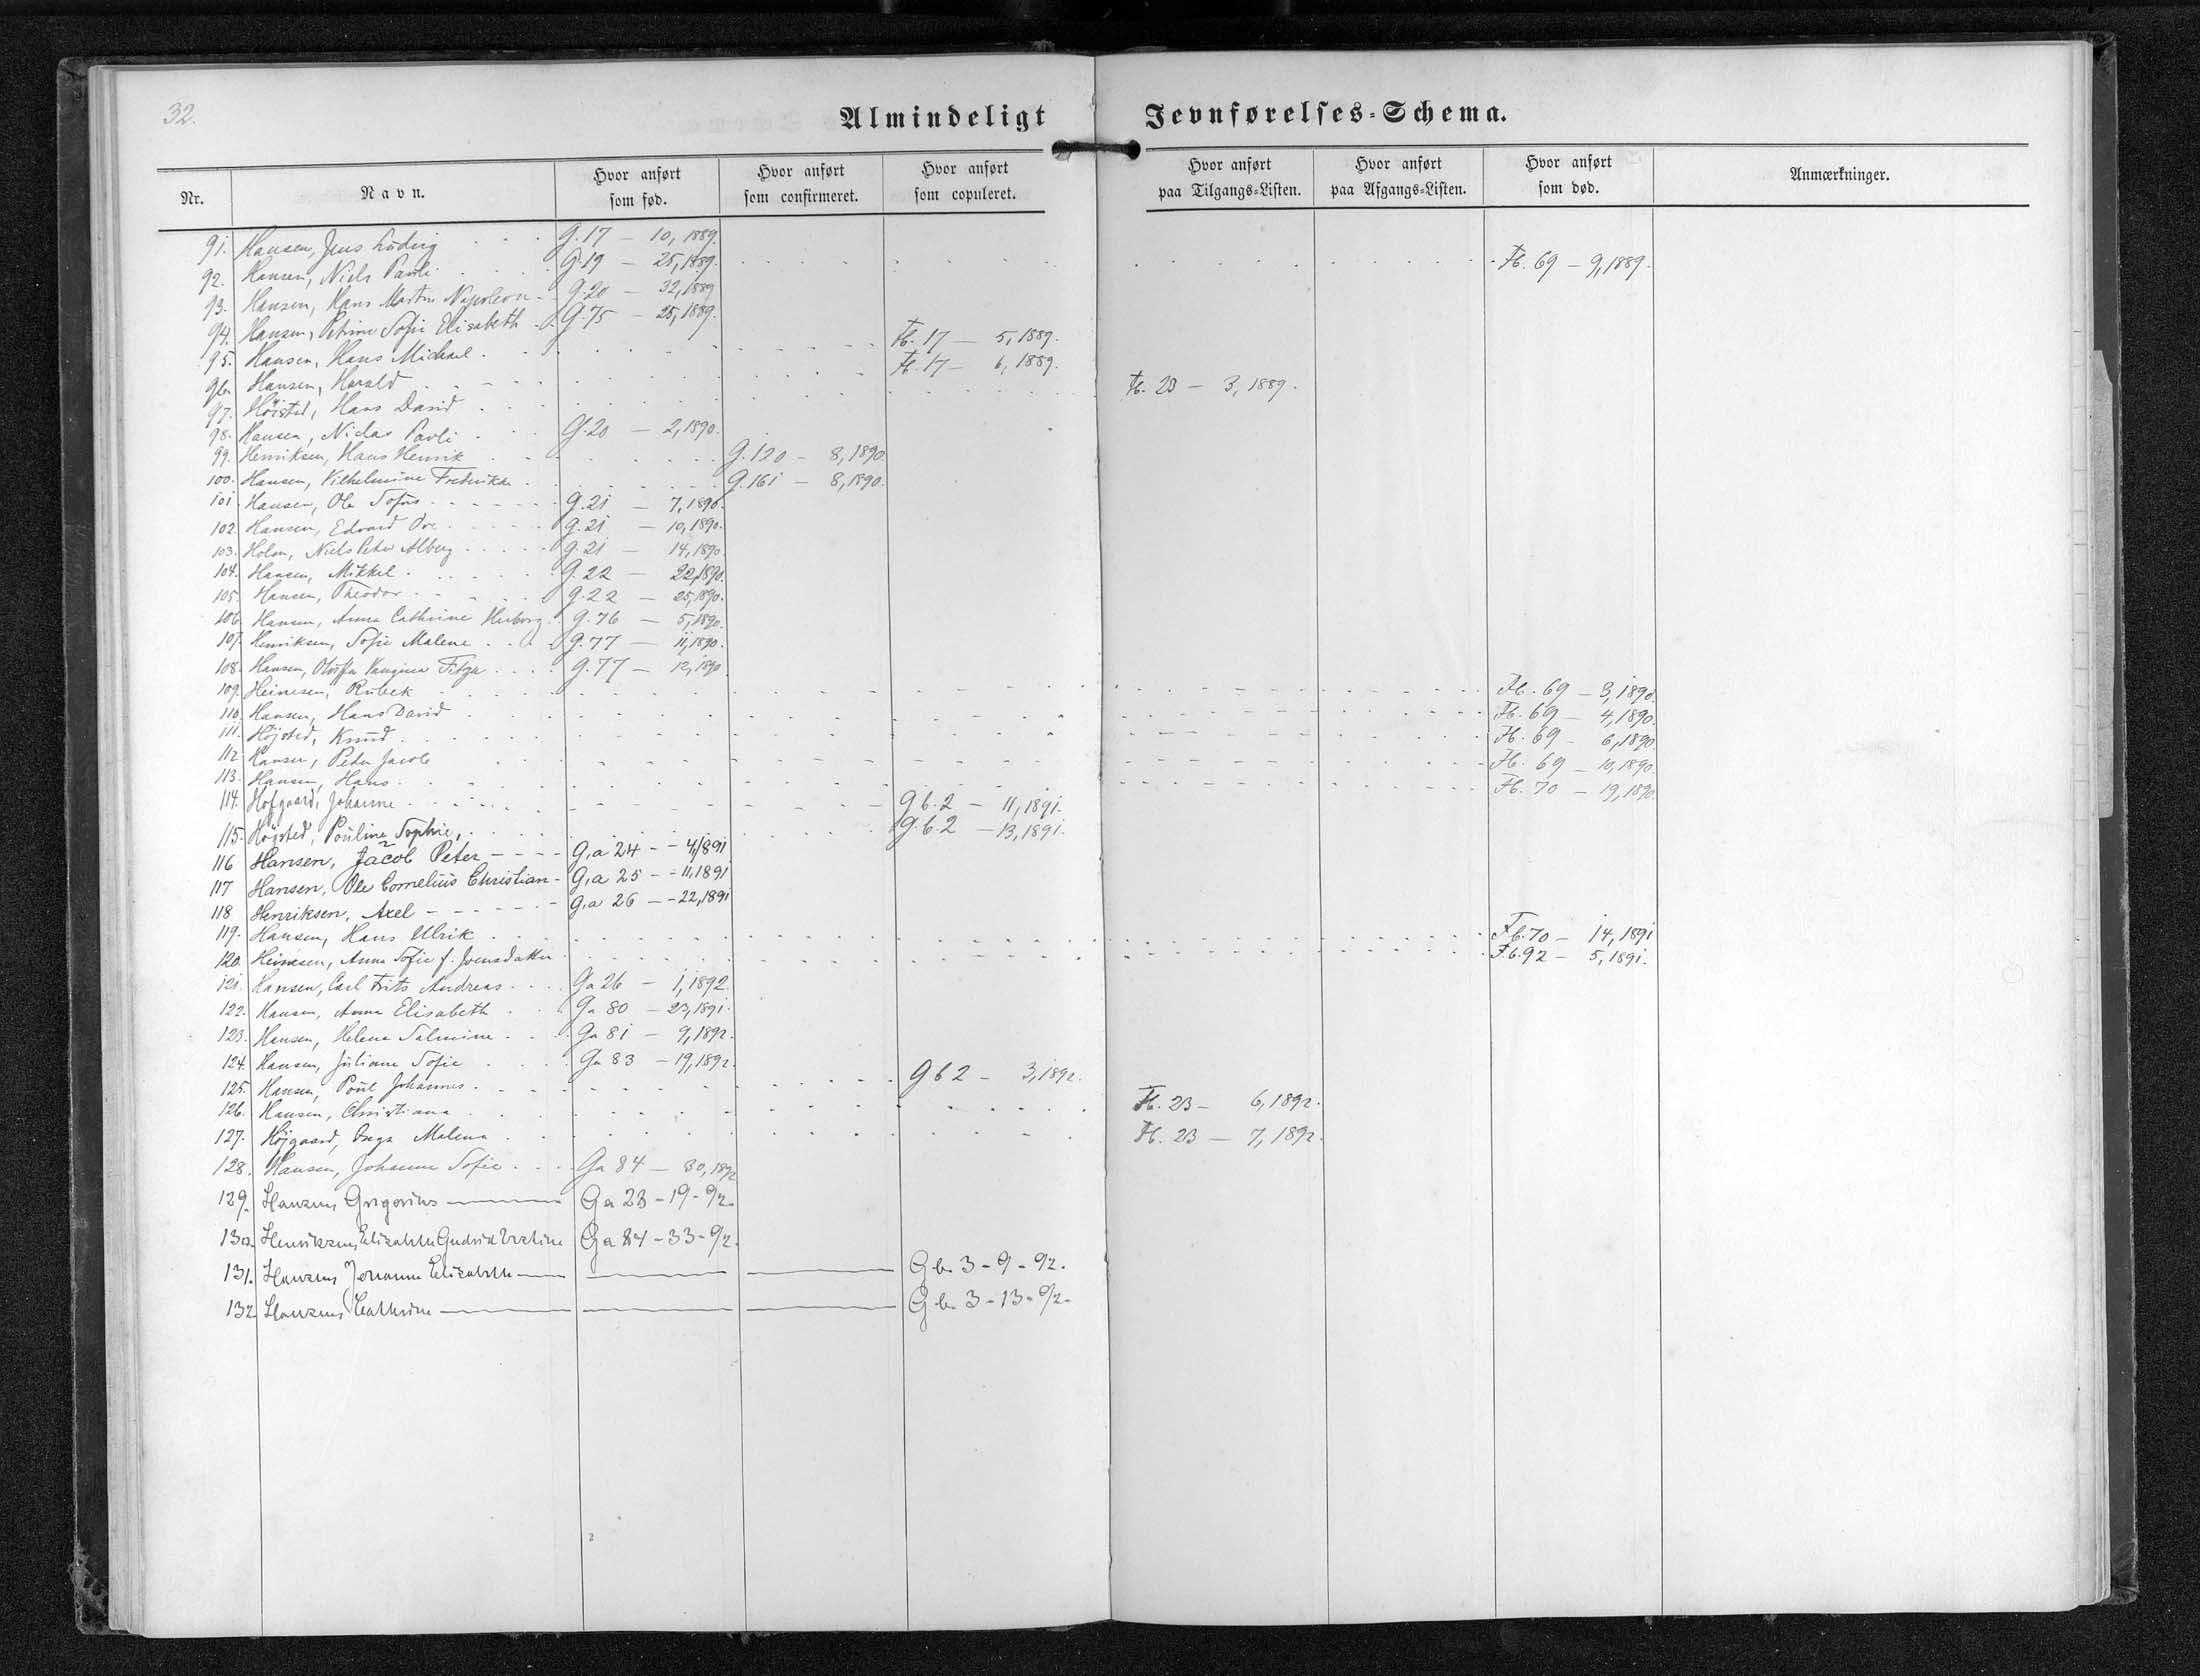 32.
Almindeligt Jevnførelses-Schema.
Nr. Navn. Hvor anført som fød. Hvor anført som confirmeret. Hvor anført som copuleret. Hvor anført paa Tilgangs-Listen. Hvor anført paa Afgangs-Listen. Hvor anført som død. Anmærkninger.
91. Hansen, Jens Ludvig G. 17 — 10, 1889.
92. Hansen, Niels Pauli G. 19 — 25, 1889. Fb. 69 — 9, 1889.
93. Hansen, Hans Martin Napoleon G. 20 — 32, 1889
94. Hansen, Petrine Sofie Elisabeth G. 75 — 25, 1889.
95. Hansen, Hans Michael Fb. 17 — 5, 1889.
96. Hansen, Harald Fb. 17 — 6, 1889.
97. Höisted, Hans David Fb. 23 — 3, 1889.
98. Hansen, Niclas Pavli G. 20 — 2, 1890.
99. Henriksen, Hans Henrik G. 120 — 8, 1890
100. Hansen, Vilhelmine Frederikke G. 161 — 8, 1890.
101 Hansen, Ole Sofus G. 21 — 7, 1890.
102. Hansen, Edvard Ove G. 21 — 10, 1890.
103. Holm, Niels Peter Alberg G. 21 — 14, 1890
104. Hansen, Mikkel G. 22 — 22, 1890.
105. Hansen, Theodor G. 22 — 25, 1890.
106. Hansen, Anna Cathrine Herborg G. 76 — 5, 1890.
107. Henriksen, Sofie Malene G. 77 — 11, 1890.
108. Hansen, G. 77 — 12, 1890
109. Heinesen, Rubek Fb. 69 — 3, 1890.
110. Hansen, Hans David Fb. 69 — 4, 1890.
111. Höjsted, Knud Fb. 69 — 6, 1890.
112 Hansen, Peter Jacob Fb. 69 — 10, 1890.
113. Hansen, Hans Fb. 70 — 19, 1890.
114. Hofgaard, Johanne G b. 2 — 11, 1891.
115. Höjsted, Pouline Sophie, G. b. 2 — 13, 1891.
116 Hansen, Jacob Peter G, a 24 - - 4, 1891
117 Hansen, Ole Cornelius Christian G, a 25 - - 11, 1891
118 Henriksen, Axel G, a 26 - - 22, 1891
119. Hansen, Hans Ulrik Fb. 70 — 14, 1891
120. Heinesen, Anna Sofie f. Joensdatter F. b. 92 — 5, 1891.
121. Hansen, Carl Frits Andreas Ga 26 — 1, 1892
122. Hansen, Anna Elisabeth Ga 80 — 23, 1891.
123. Hansen, Helena Salmine Ga 81 — 9, 1892.
124. Hansen, Juliane Sofie Ga 83 — 19, 1892
125. Hansen, Poul Johannes G b 2 — 3, 1892.
126. Hansen, Christiana Fb. 23 — 6, 1892.
127. Höjgaard, Inga Malena Fb. 23 — 7, 1892.
128. Hansen, Johanne Sofie Ga 84 — 30, 1892
129. Hansen, Grigorius Ga 28 - 19 - 92.
130. Henriksen, Elisabeth Gudrid Ga 84 - 33 - 92.
131. Hansen, Johanne Elisabeth G b. 3 - 9 - 92.
132 Hansen, Cathrine G b. 3 - 13 - 92.